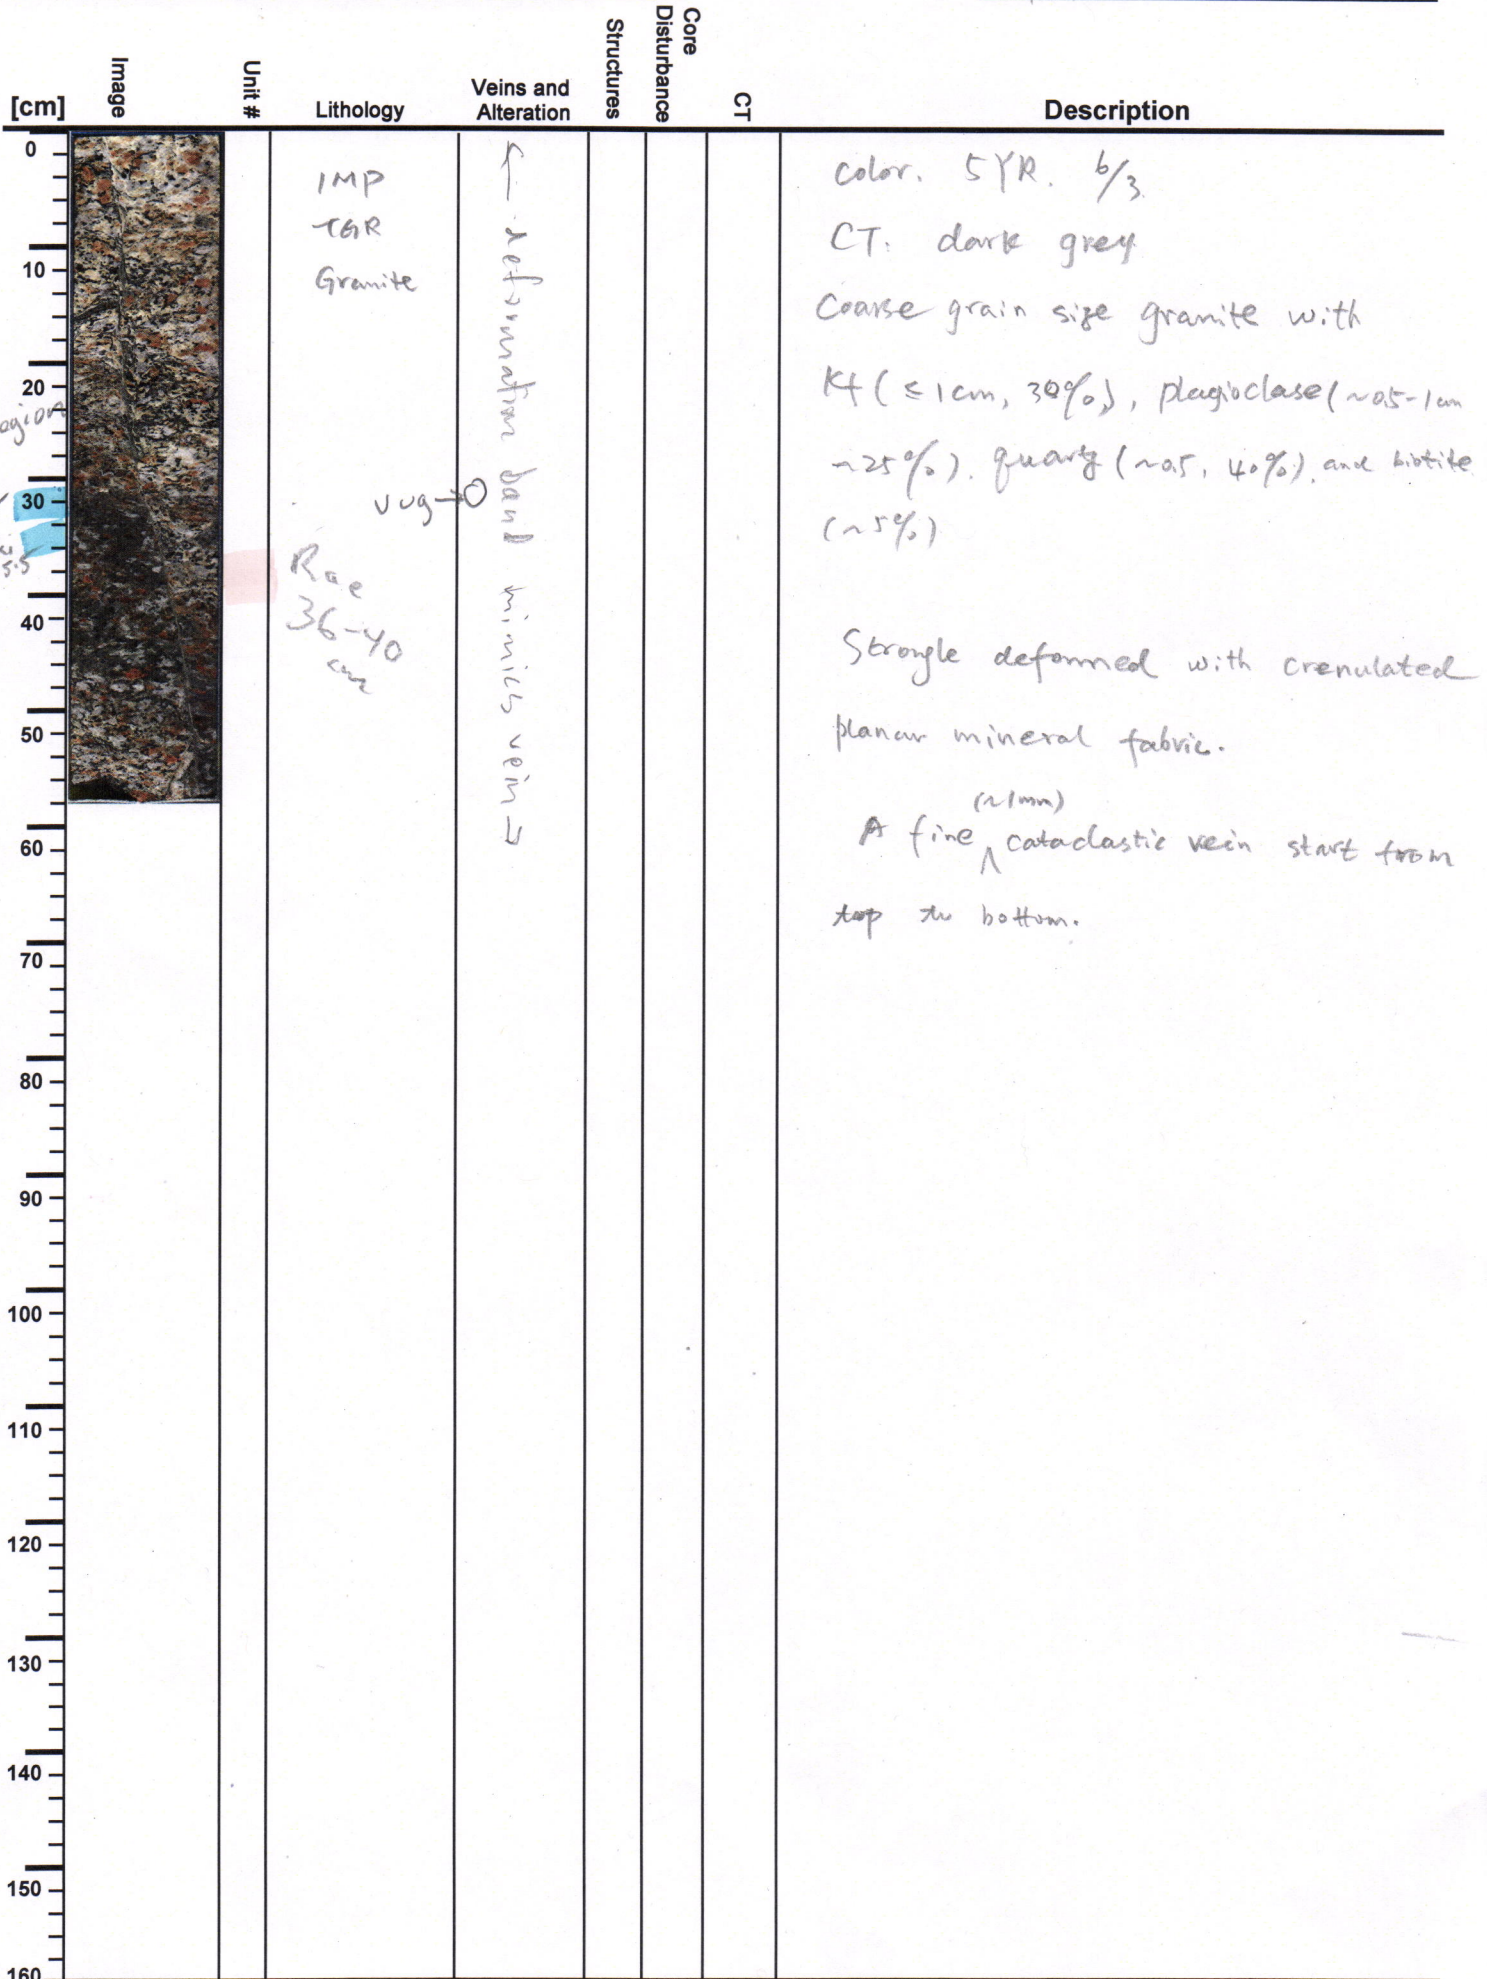 [cm]
Image
Unit #
Lithology
Veins and
Alteration
Structures
Core
Disturbance
CT
Description
0
10
20
30
40
50
60
70
80
90
100
110
120
130
140
150
160
egion
5.5
IMP
TGR
Granite
vug→
Rae
36-40
cm
← deformation band mimics vein →
Color. 5YR. 6/3.
CT: dark grey
Coarse grain size granite with
Kf (≤ 1cm, 30%), plagioclase (~0.5-1cm
~25%), quartz (~0.5, 40%), and biotite
(~5%)
Strongle deformed with crenulated
planar mineral fabric.
(~1mm)
A fine ∧ cataclastic vein start from
top to bottom.